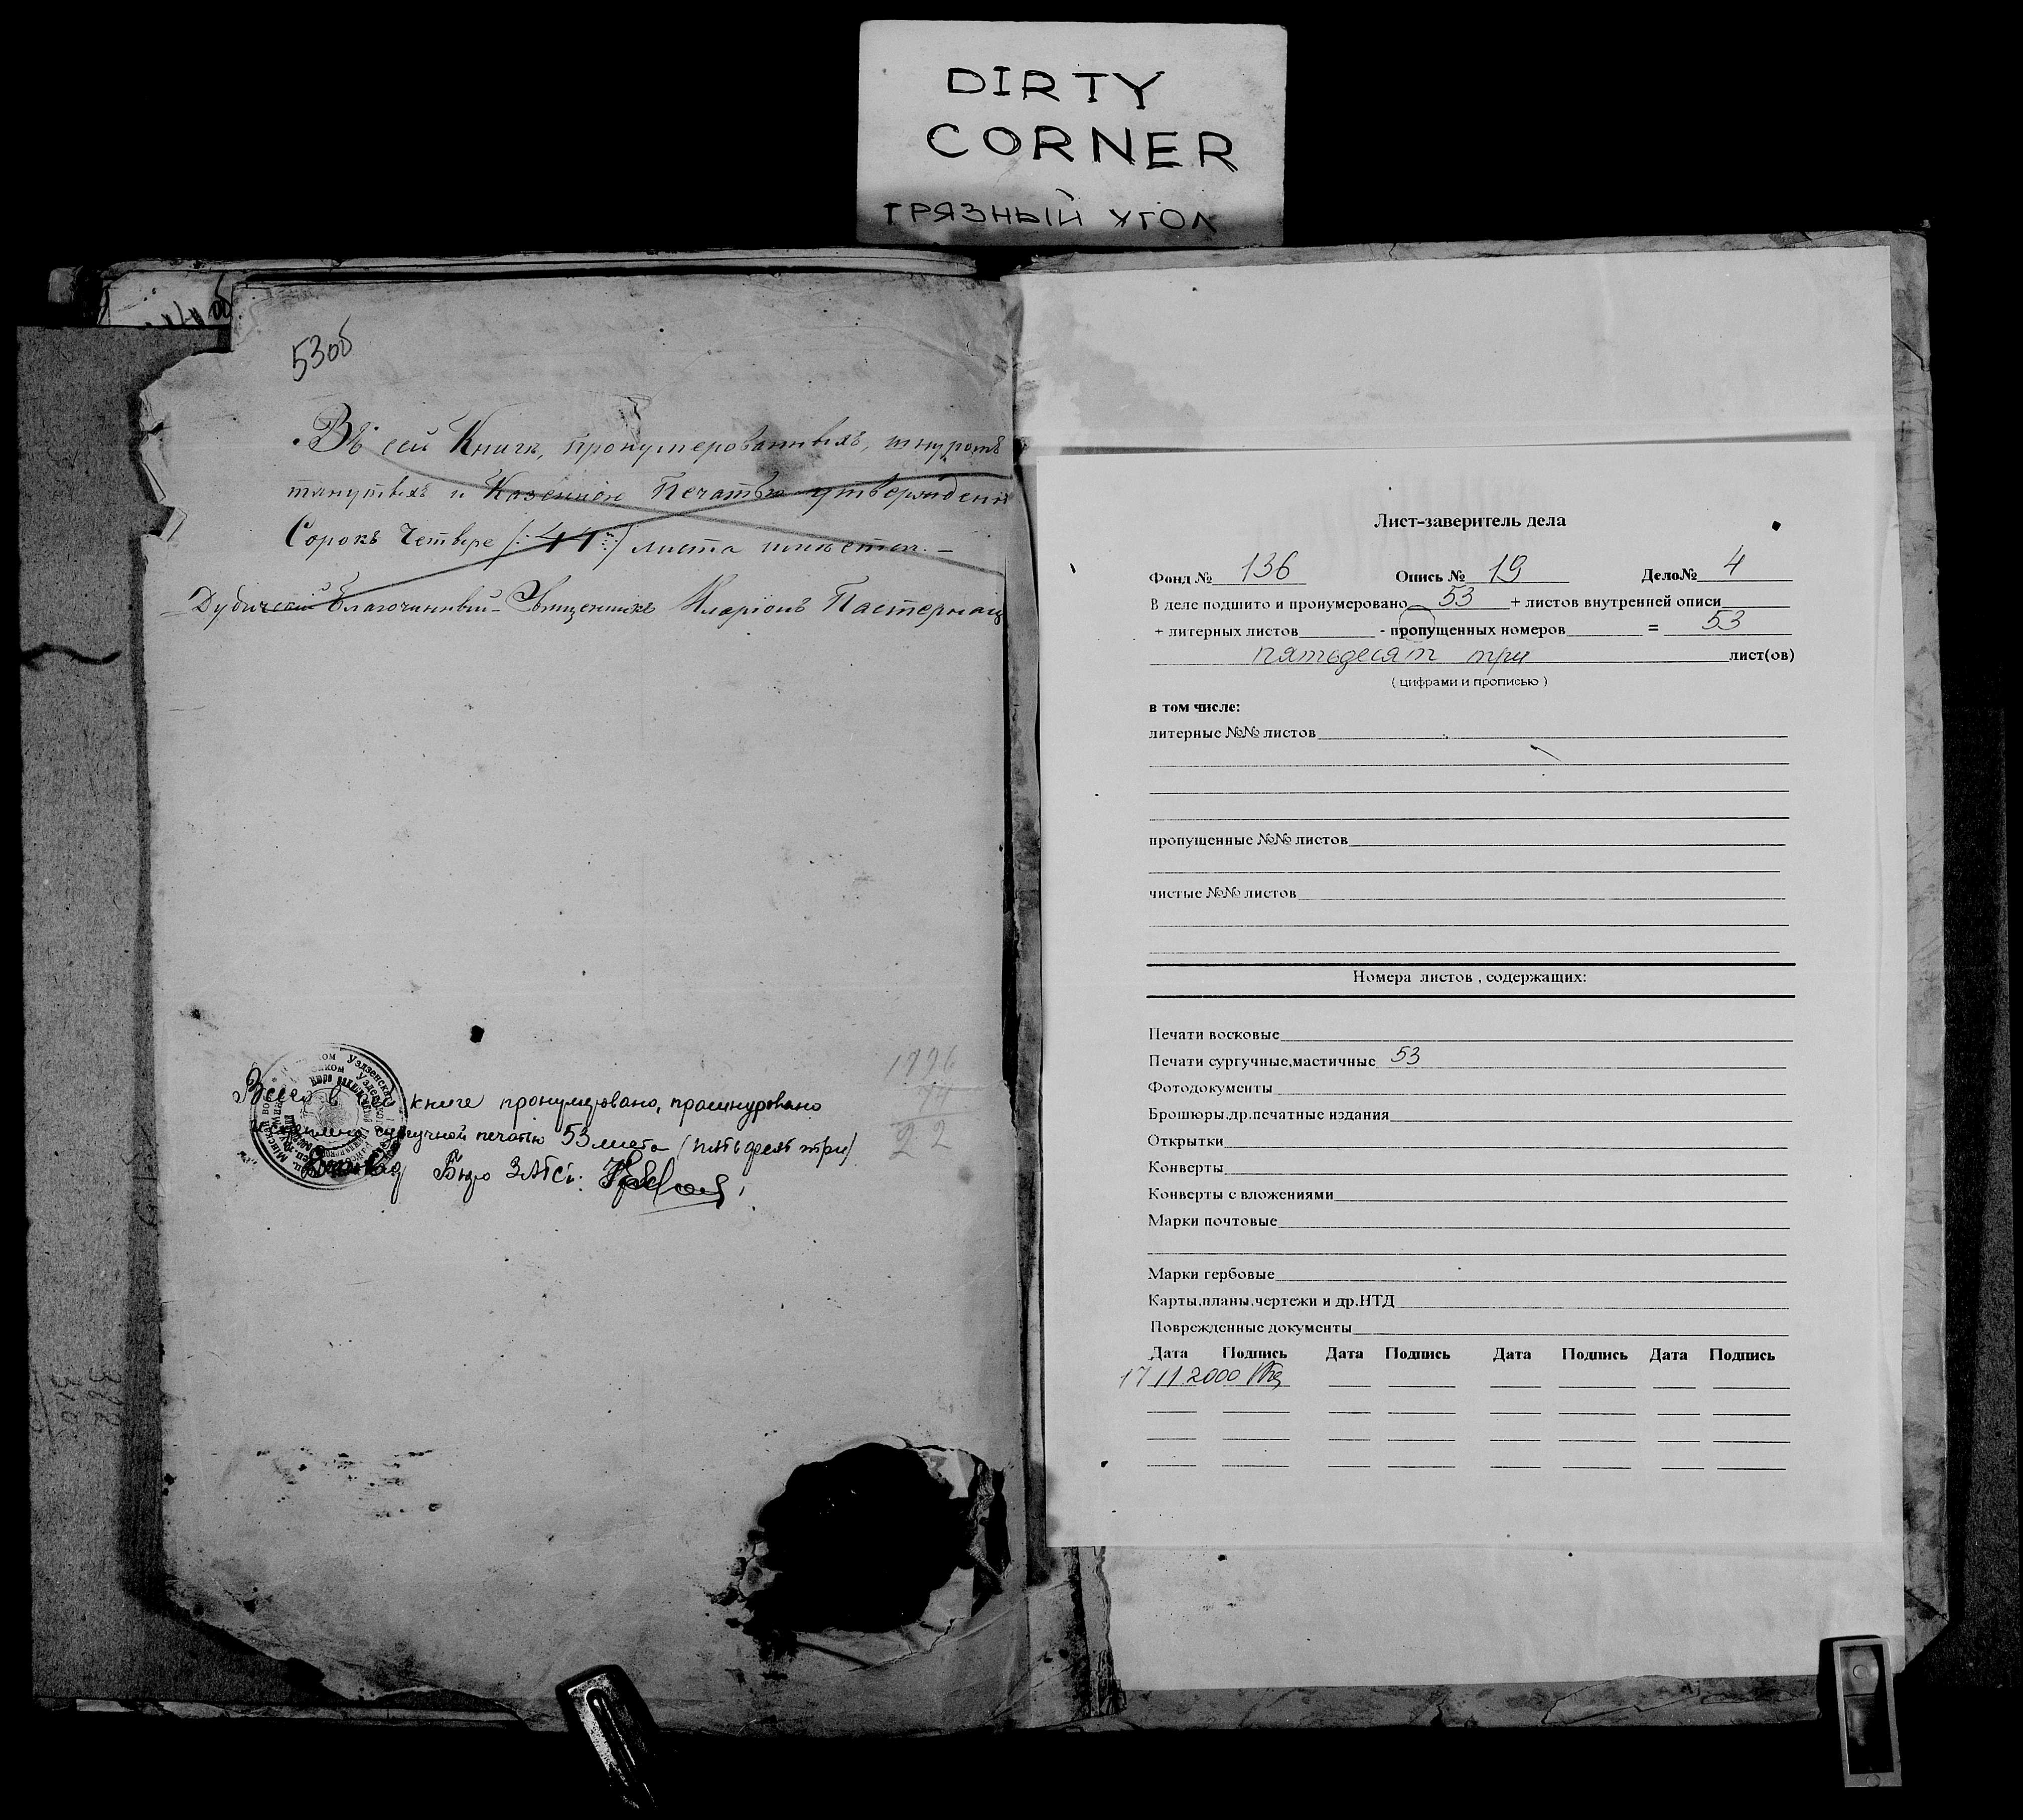 DIRTY
CORNER
ГРЯЗНЫЙ УГОЛ
53об
Въ сей Книгѣ, пронумерованныхъ, шнуромъ
тянутыхъ и Казенною Печатью утвержденн
Сорокъ Четыре /:44:/ листа имѣется. —
Дубичскій Благочинный Священникъ Иларіонъ Пастернац
1796
74
22
Всего в сей книге пронумеровано, прошнуровано
и скреплено сургучной печатью 53 листа (пятьдесят три)
Бюро ЗАГСа:
Лист-заверитель дела
Фонд № 136 Опись № 19 Дело№ 4
В деле подшито и пронумеровано 53 + листов внутренней описи
+ литерных листов - пропущенных номеров = 53
пятьдесят три лист(ов)
( цифрами и прописью )
в том числе:
литерные №№ листов
пропущенные №№ листов
чистые №№ листов
Номера листов , содержащих:
Печати восковые
Печати сургучные,мастичные 53
Фотодокументы
Брошюры,др.печатные издания
Открытки
Конверты
Конверты с вложениями
Марки почтовые
Марки гербовые
Карты,планы,чертежи и др.НТД
Поврежденные документы
Дата Подпись Дата Подпись Дата Подпись Дата Подпись
17 11 2000